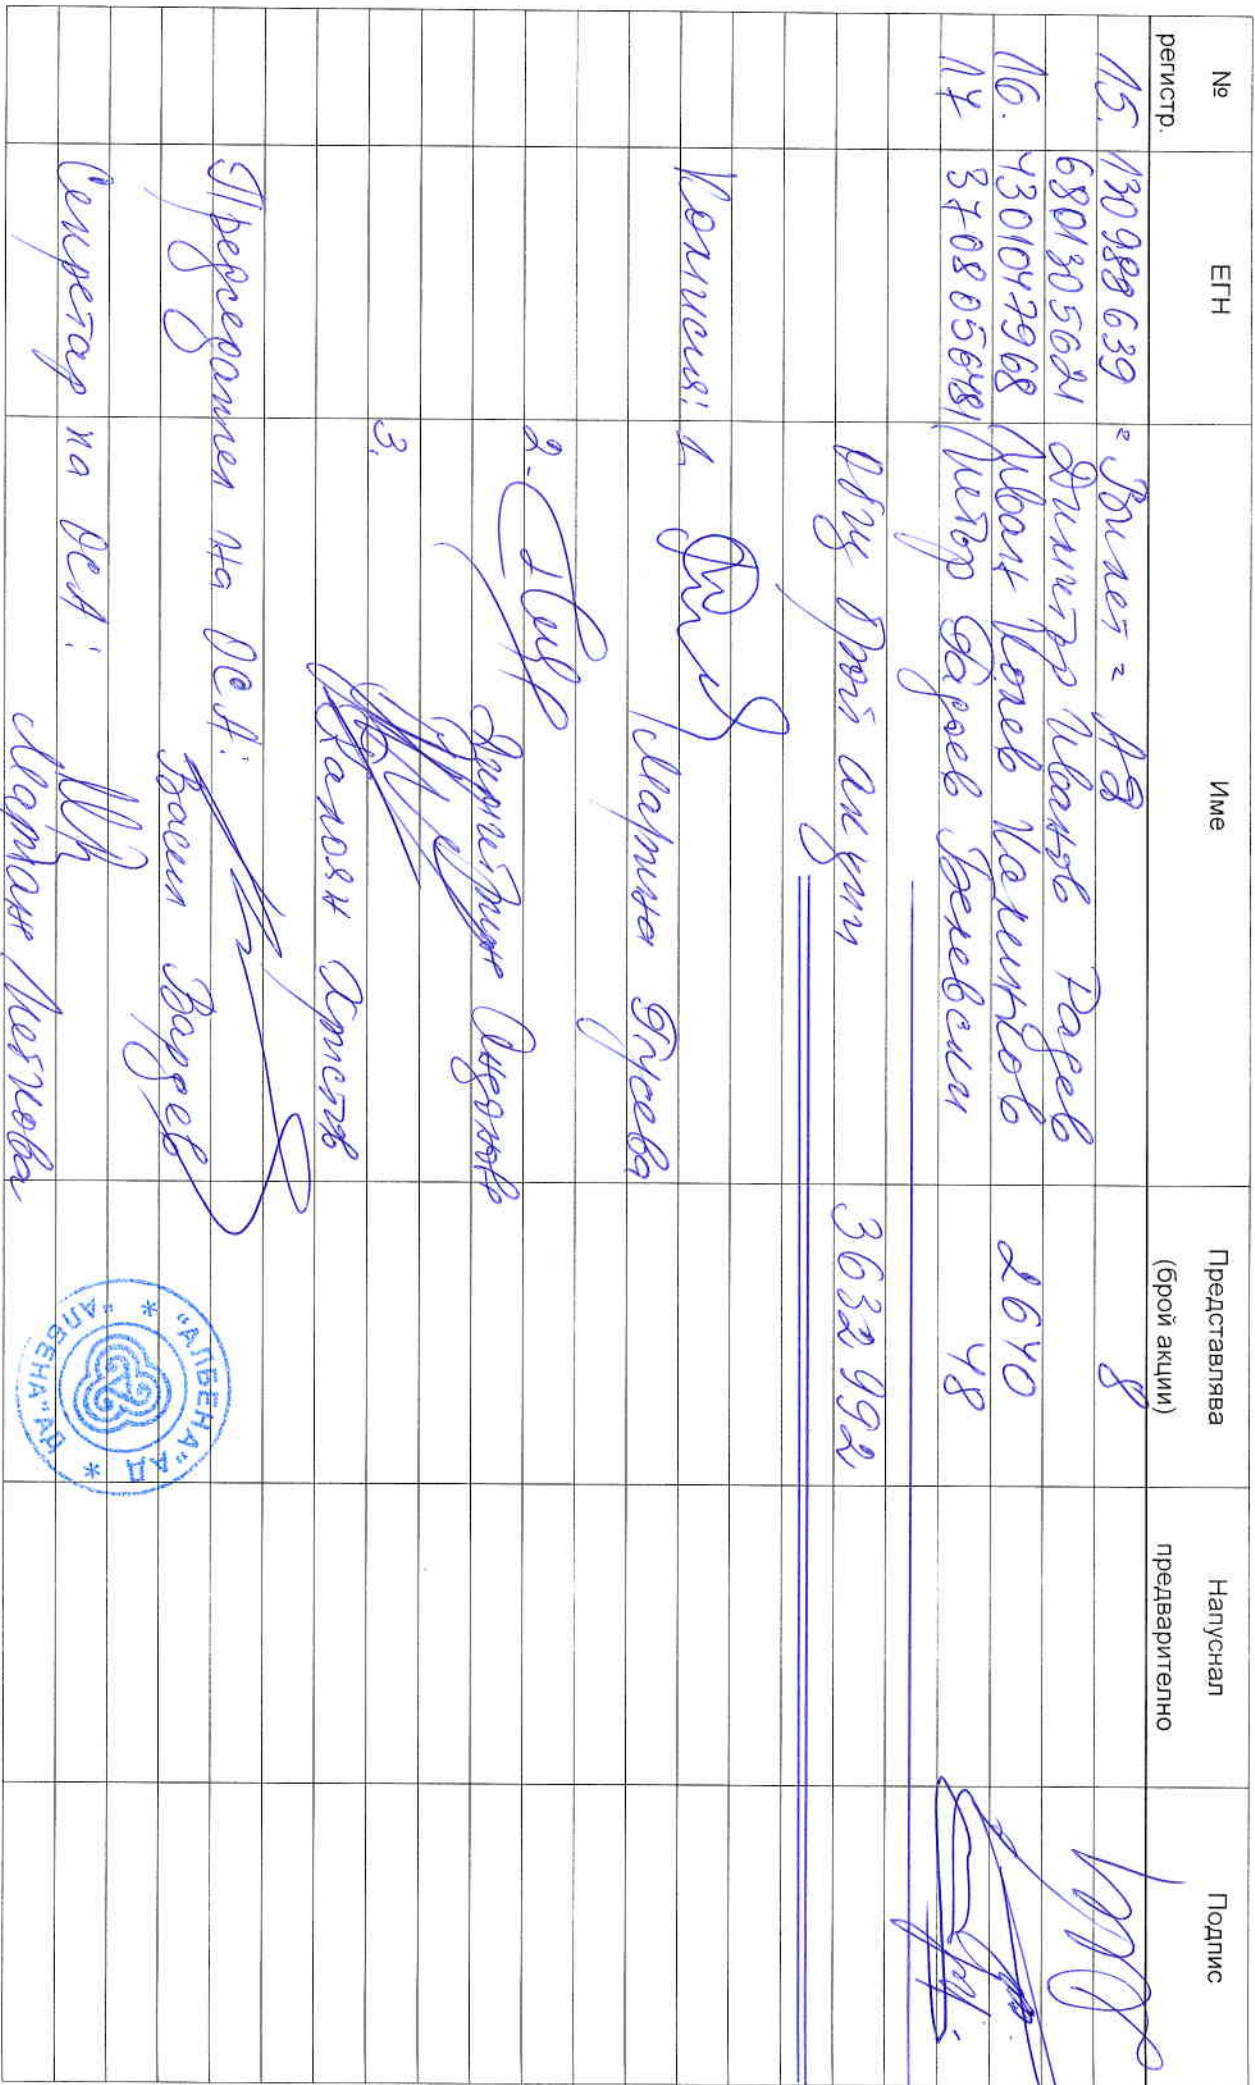 № регистр. ЕГН Име Представлява (брой акции) Напуснал предварително Подпис
15. 130988639 "Билет" АД 8
6801305621 Димитър Иванов Радев
16. 4301047968 Иван Колев Калинков 2640
17 3708056481 Петър Фадеев Белевски 48
Общ брой акции 3632992
Комисия: 1.
Марина Гусева
2.
Димитрин Андонов
3.
Калоян Христов
Председател на ОСА:
Васил Вардев
Секретар на ОСА:
Мариан Петкова
"АЛБЕНА" АД * "АЛБЕНА" АД *